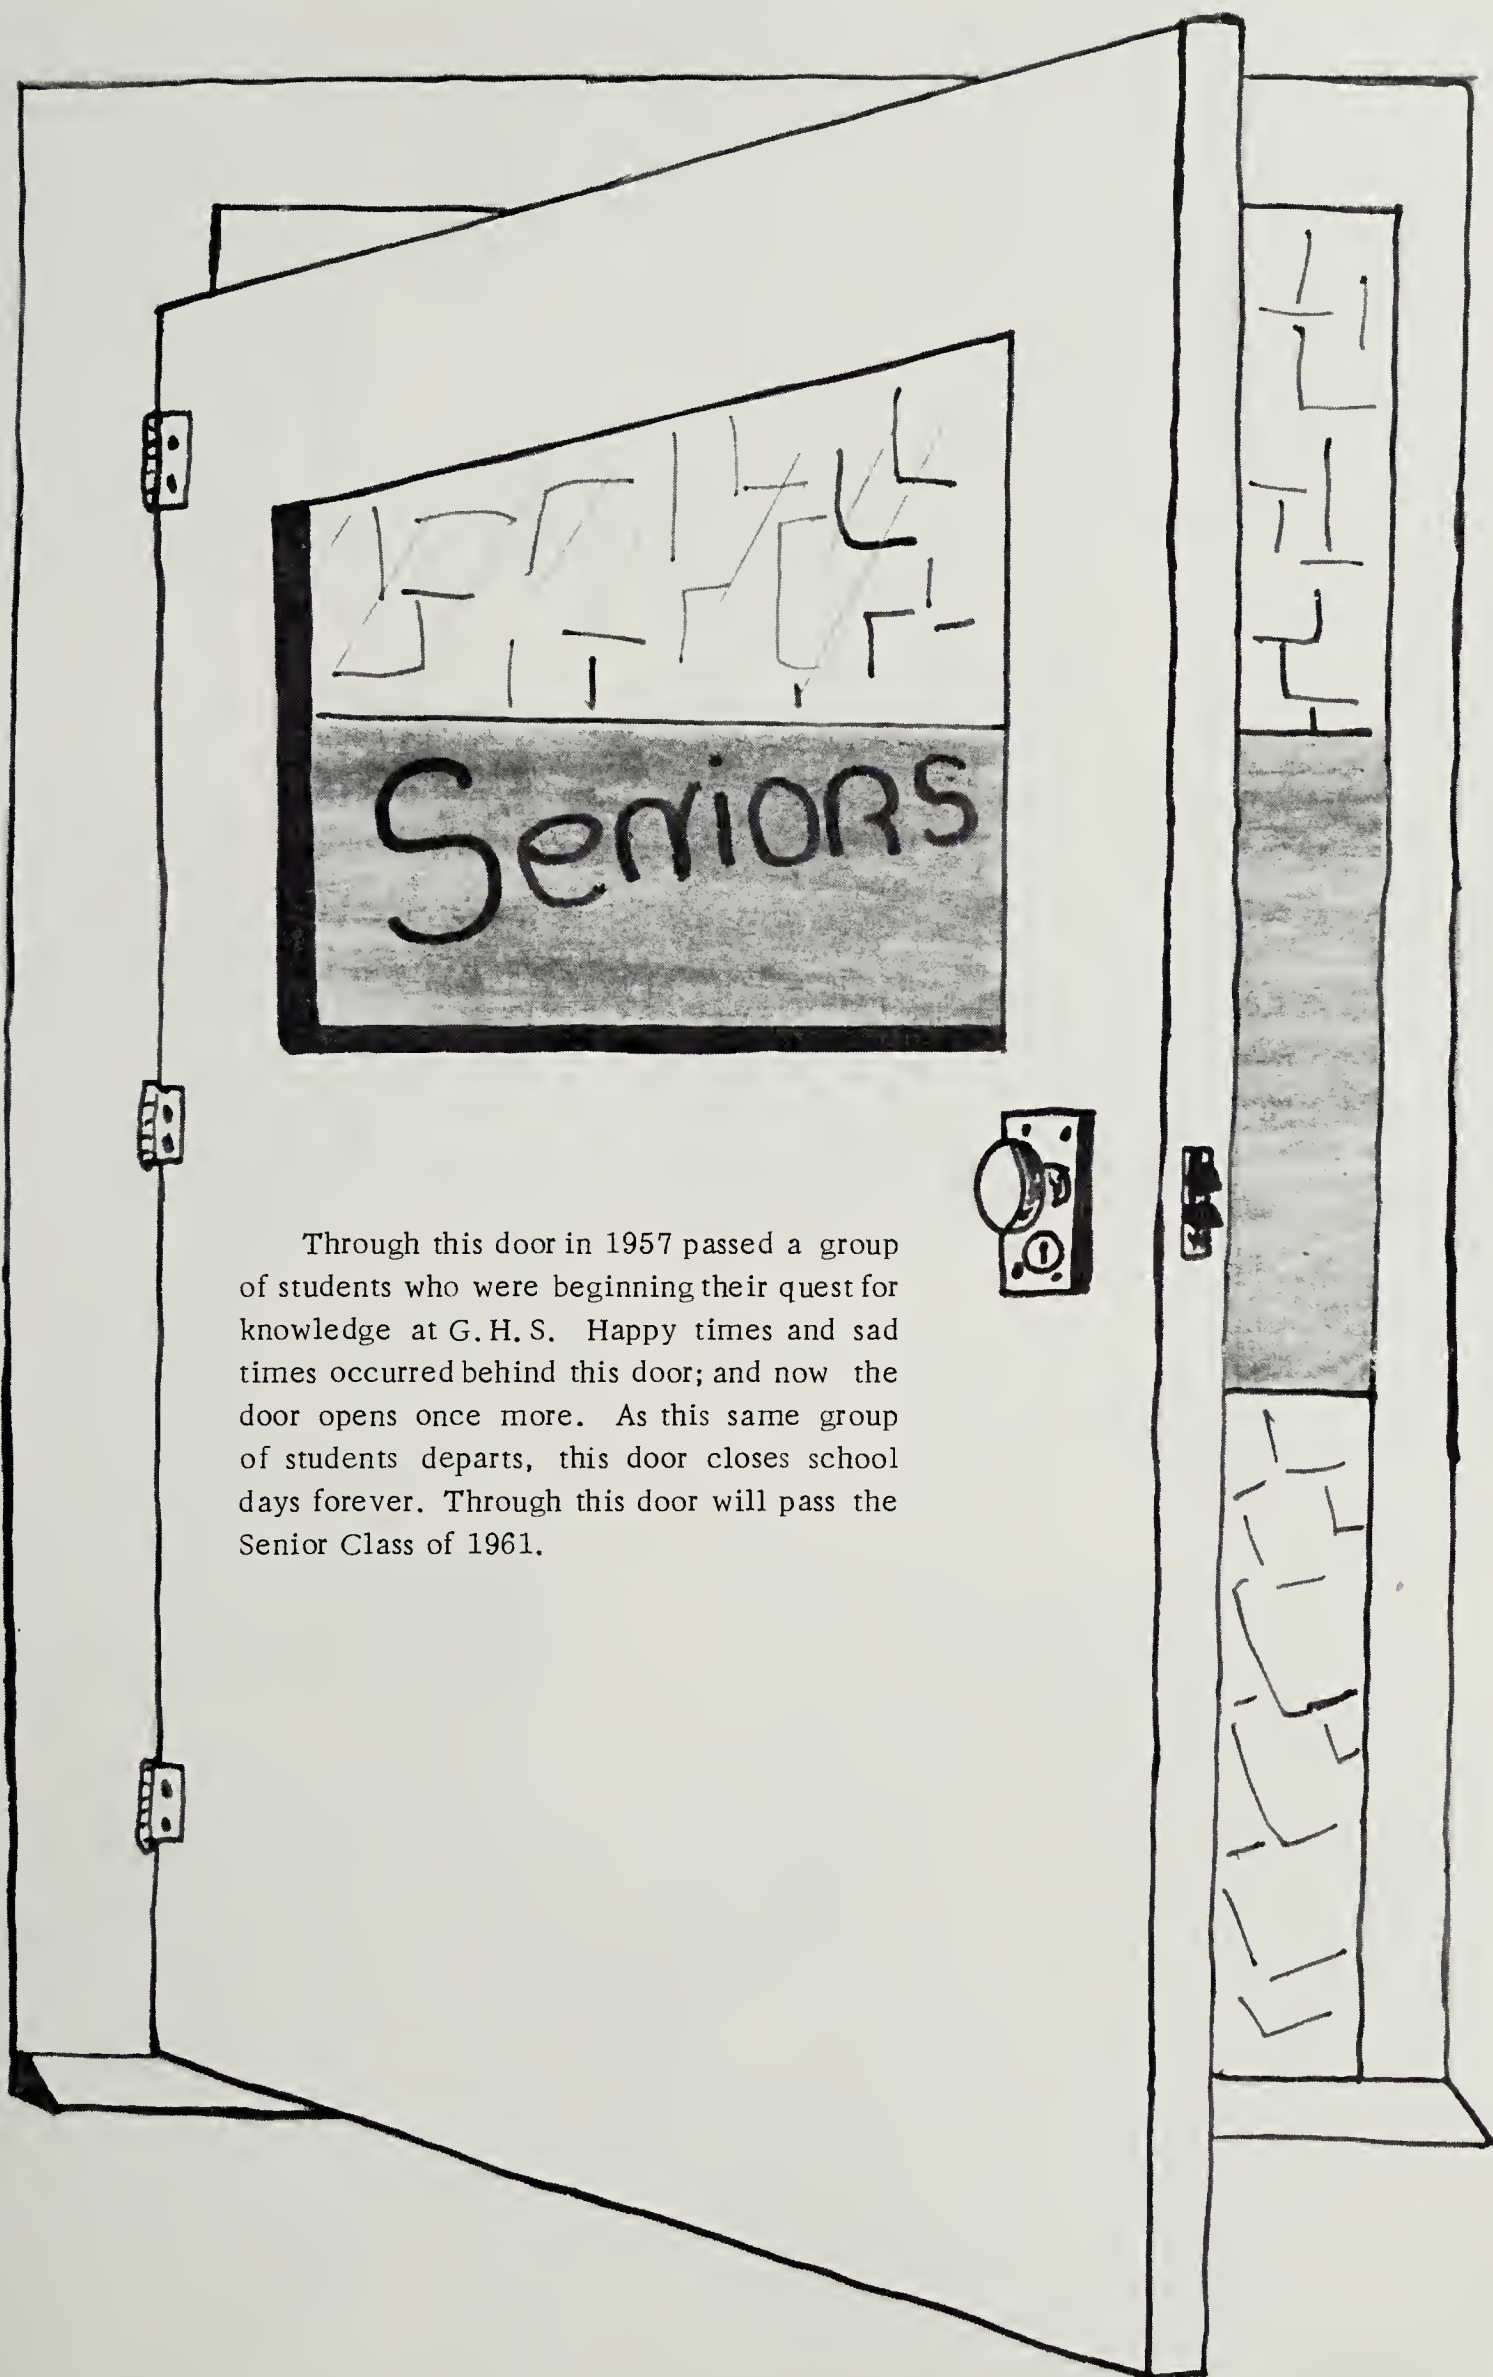 Seniors
Through this door in 1957 passed a group
of students who were beginning their quest for
knowledge at G.H.S. Happy times and sad
times occurred behind this door; and now the
door opens once more. As this same group
of students departs, this door closes school
days forever. Through this door will pass the
Senior Class of 1961.